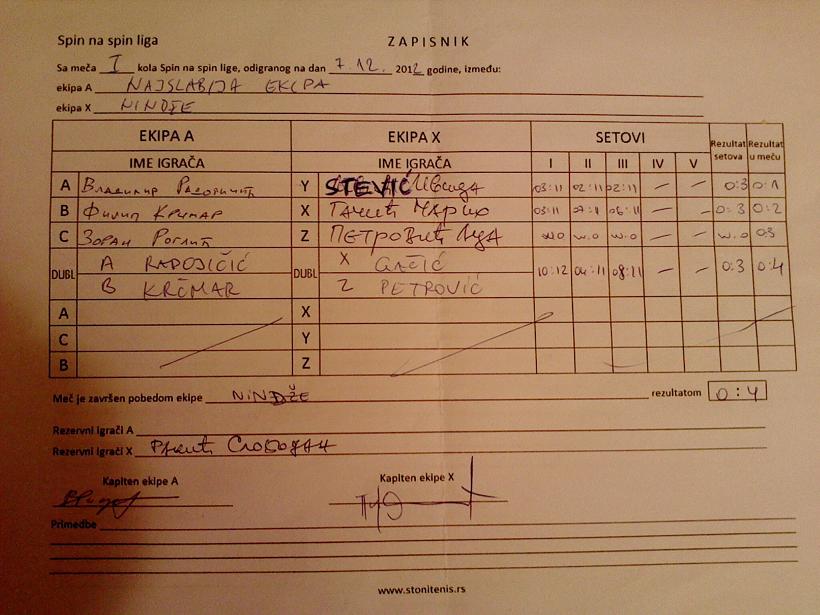 Spin na spin liga
ZAPISNIK
Sa meča I kola Spin na spin lige, odigranog na dan 7.12. 2012 godine, između:
ekipa A NAJSLABIJA EKIPA
ekipa X NINDŽE
EKIPA A EKIPA X SETOVI Rezultat setova Rezultat u meču
IME IGRAČA IME IGRAČA I II III IV V
A Владимир Y STEVIĆ 03:11 02:11 02:11 — — 0:3 0:1
B Филип Крчмар X Марко 03:11 07:11 06:11 — — 0:3 0:2
C Зоран Z ПЕТРОВИЋ W.O W.O W.O — — W.O 0:3
DUBL A RADOJIČIĆ DUBL X GAČIĆ 10:12 04:11 08:11 — — 0:3 0:4
B KRČMAR Z PETROVIĆ
A X
C Y
B Z
Meč je završen pobedom ekipe NINDŽE rezultatom 0:4
Rezervni igrači A
Rezervni igrači X Слободан
Kapiten ekipe A Kapiten ekipe X
Primedbe
www.stonitenis.rs